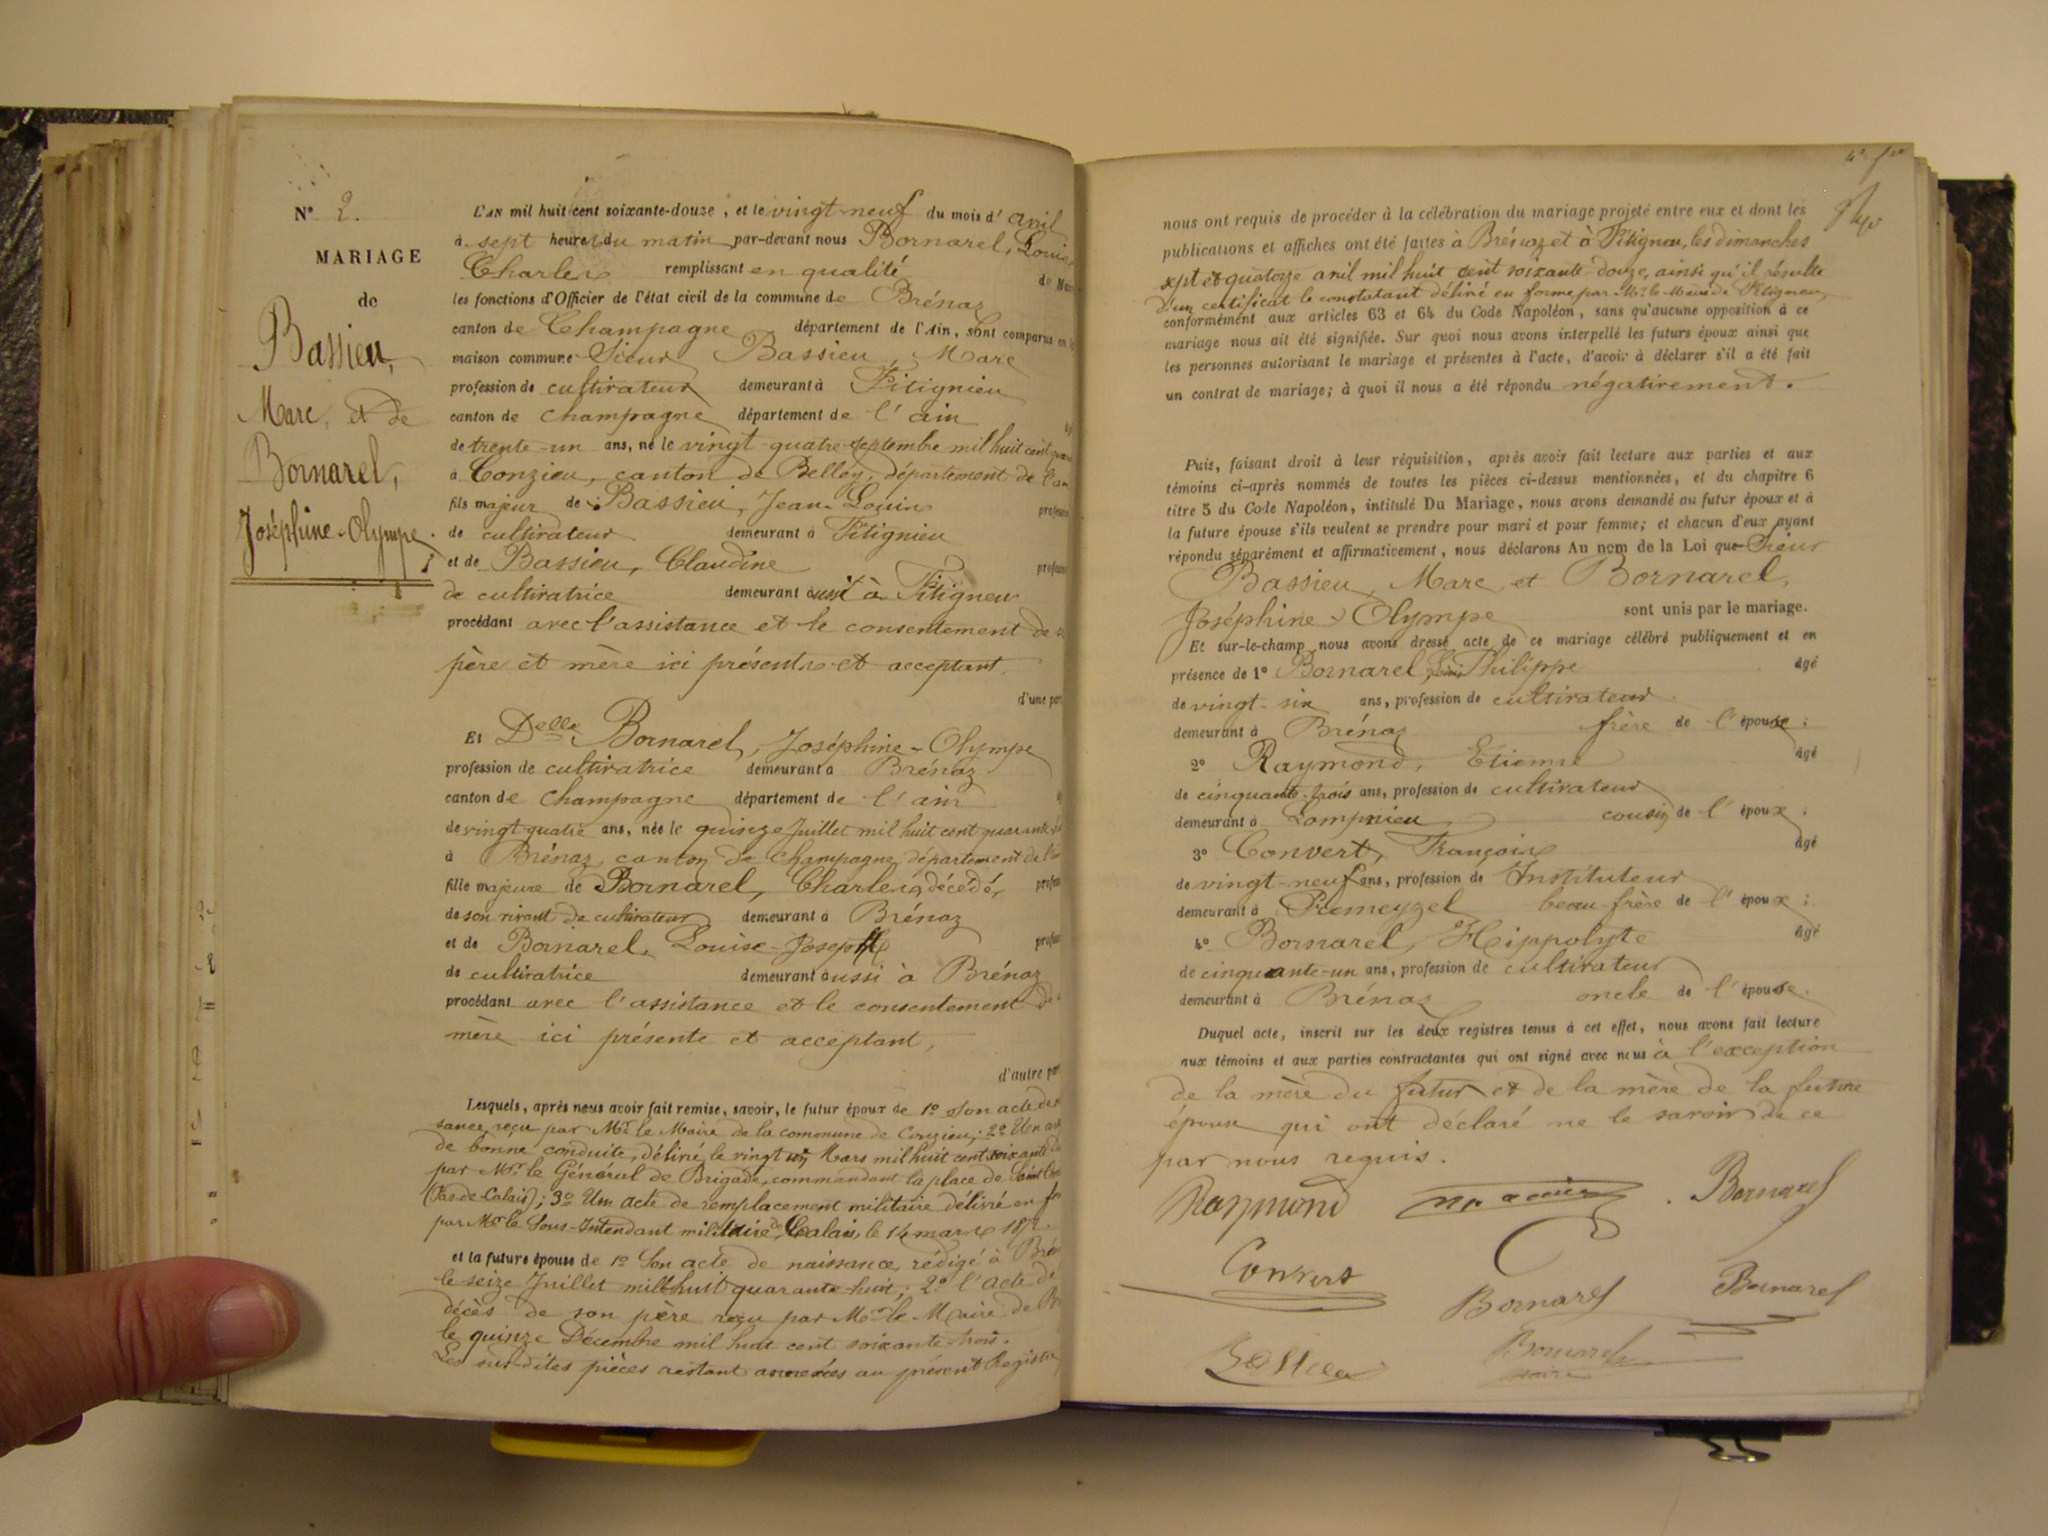 N° 2.
MARIAGE
de
Bassieu,
Marc, et de
Bornarel,
Joséphine-Olympe.
L'AN mil huit cent soixante-douze, et le vingt-neuf du mois d'avril
à sept heures du matin par-devant nous Bornarel, Louis
Charles remplissant en qualité de
les fonctions d'Officier de l'état civil de la commune de Brénaz
canton de Champagne département de l'Ain, sont comparus en
maison commune Sieur Bassieu, Marc
profession de cultivateur demeurant à Fitignieu
canton de Champagne département de l'ain
de trente-un ans, né le vingt-quatre septembre mil huit cent
à Conzieu, canton de Belley, département de l'ain
fils majeur de Bassieu, Jean-Louis
de cultivateur demeurant à Fitignieu
et de Bassieu, Claudine
de cultivatrice demeurant aussi à Fitignieu
procédant avec l'assistance et le consentement de
père et mère ici présents et acceptant.
d'une part
Et Delle Bornarel, Joséphine-Olympe
profession de cultivatrice demeurant à Brénaz
canton de Champagne département de l'ain
de vingt-quatre ans, née le quinze Juillet mil huit cent quarante
à Brénaz, canton de Champagne, département de l'
fille majeure de Bornarel, Charles, décédé,
de son vivant de cultivateur demeurant à Brénaz
et de Bornarel, Louise-Joseph
de cultivatrice demeurant aussi à Brénaz
procédant avec l'assistance et le consentement de
mère ici présente et acceptant,
d'autre part
Lesquels, après nous avoir fait remise, savoir, le futur époux de 1° Son acte de
sance, reçu par Mr. le Maire de la commune de Conzieu; 2° Un
de bonne conduite, délivré le vingt Mars mil huit cent soixante
par Mr. le Général de Brigade, commandant la place de Saint
(Pas-de-Calais); 3° Un acte de remplacement militaire délivré en
par Mr le Sous-Intendant militaire de Calais, le 14 mars
et la future épouse de 1° Son acte de naissance, rédigé à
le seize Juillet mil huit quarante-huit; 2° l'acte de
décès de son père reçu par Mr le Maire de
le quinze Décembre mil huit cent soixante-trois.
Les susdites pièces restant annexées au présent Registre
nous ont requis de procéder à la célébration du mariage projeté entre eux et dont les
publications et affiches ont été faites à Brénaz et à Fitignieu, les dimanches
sept et quatorze avril mil huit cent soixante-douze, ainsi qu'il résulte
d'un certificat le constatant délivré en forme par Mr. le Maire de Fitignieu,
conformément aux articles 63 et 64 du Code Napoléon, sans qu'aucune opposition à ce
mariage nous ait été signifiée. Sur quoi nous avons interpellé les futurs époux ainsi que
les personnes autorisant le mariage et présentes à l'acte, d'avoir à déclarer s'il a été fait
un contrat de mariage; à quoi il nous a été répondu négativement.
Puis, faisant droit à leur réquisition, après avoir fait lecture aux parties et aux
témoins ci-après nommés de toutes les pièces ci-dessus mentionnées, et du chapitre 6
titre 5 du Code Napoléon, intitulé Du Mariage, nous avons demandé au futur époux et à
la future épouse s'ils veulent se prendre pour mari et pour femme; et chacun d'eux ayant
répondu séparément et affirmativement, nous déclarons Au nom de la Loi que Sieur
Bassieu, Marc et Bornarel,
Joséphine-Olympe sont unis par le mariage.
Et sur-le-champ nous avons dressé acte de ce mariage célébré publiquement et en
présence de 1° Bornarel, Philippe âgé
de vingt-six ans, profession de cultivateur
demeurant à Brénaz frère de l'épouse;
2° Raymond, Etienne âgé
de cinquante-trois ans, profession de cultivateur
demeurant à Lompnieu cousin de l'époux;
3° Convert, François âgé
de vingt-neuf ans, profession de Instituteur
demeurant à Premeyzel beau-frère de l'époux;
4° Bornarel, Hippolyte âgé
de cinquante-un ans, profession de cultivateur
demeurant à Brénaz oncle de l'épouse.
Duquel acte, inscrit sur les deux registres tenus à cet effet, nous avons fait lecture
aux témoins et aux parties contractantes qui ont signé avec nous à l'exception
de la mère du futur et de la mère de la future
épouse qui ont déclaré ne le savoir de ce
par nous requis.
Raymond Bornarel
Convert Bornarel Bornarel
Bornarel
maire